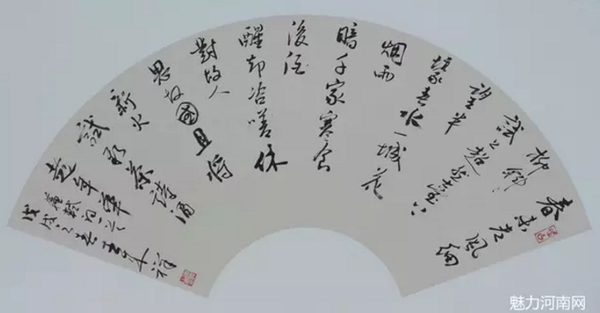 春未老风细
柳斜
試上超然臺上
望半
壕春水一城花
烟雨
暗千家寒食
後酒
醒却咨嗟休
對故人
思故國且将
新火
試新茶詩酒
趁年華
戊戌之春
魅力河南网